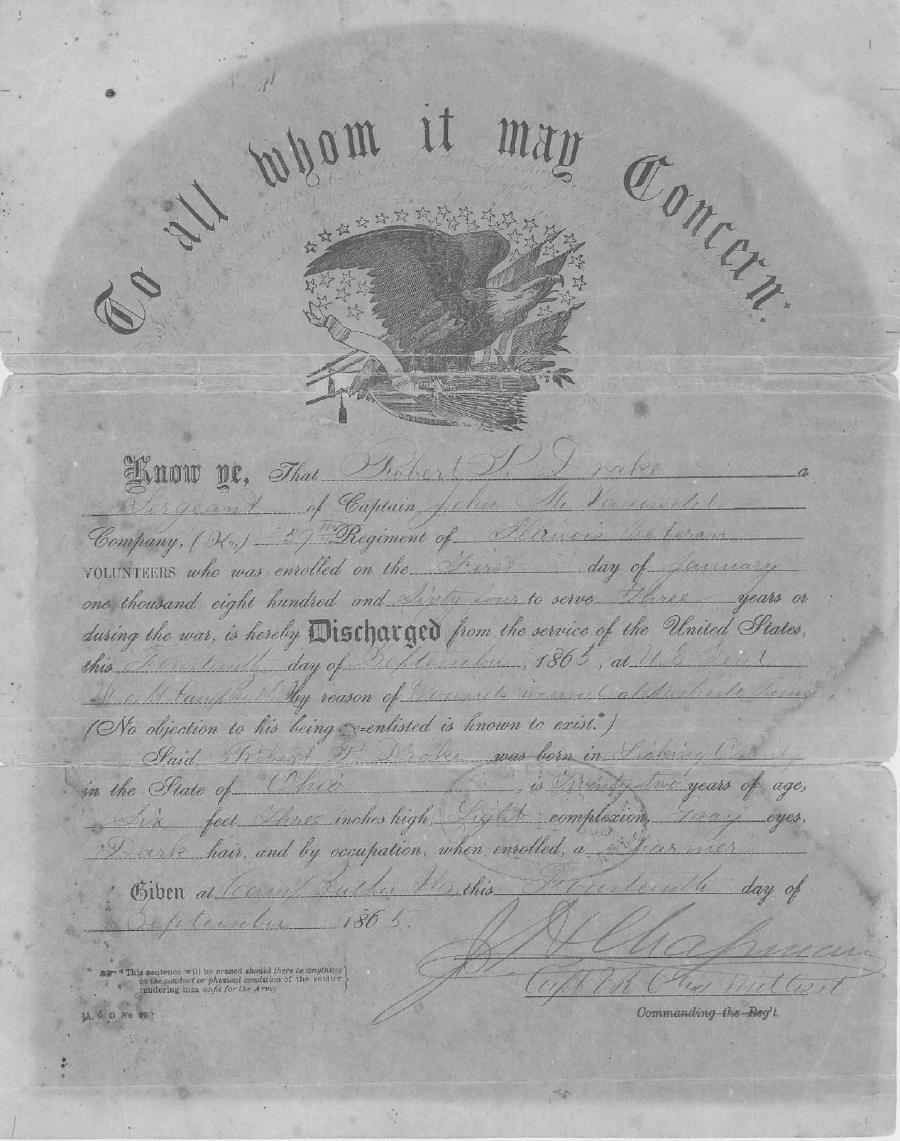 To all whom it may Concern:
Know ye, That Robert P. Drake a
Sergeant of Captain John M.
Company, (K,) 57th Regiment of Illinois Veteran
VOLUNTEERS who was enrolled on the First day of January
one thousand eight hundred and Sixty four to serve Three years or
during the war, is hereby Discharged from the service of the United States,
this Fourteenth day of September, 1865, at U.S. Genl
by reason of Wounds
(No objection to his being re-enlisted is known to exist.*)
Said Robert P. Drake was born in Licking County
in the State of Ohio, is Twenty two years of age,
Six feet Three inches high, Light complexion, Gray eyes,
Dark hair, and by occupation, when enrolled, a Farmer
Given at Camp Butler Ills this Fourteenth day of
September 1865.
J H Chapman
Capt
* This sentence will be erased should there be anything
in the conduct or physical condition of the soldier
rendering him unfit for the Army
Commanding the Reg't.
[A. G. O. No 99]